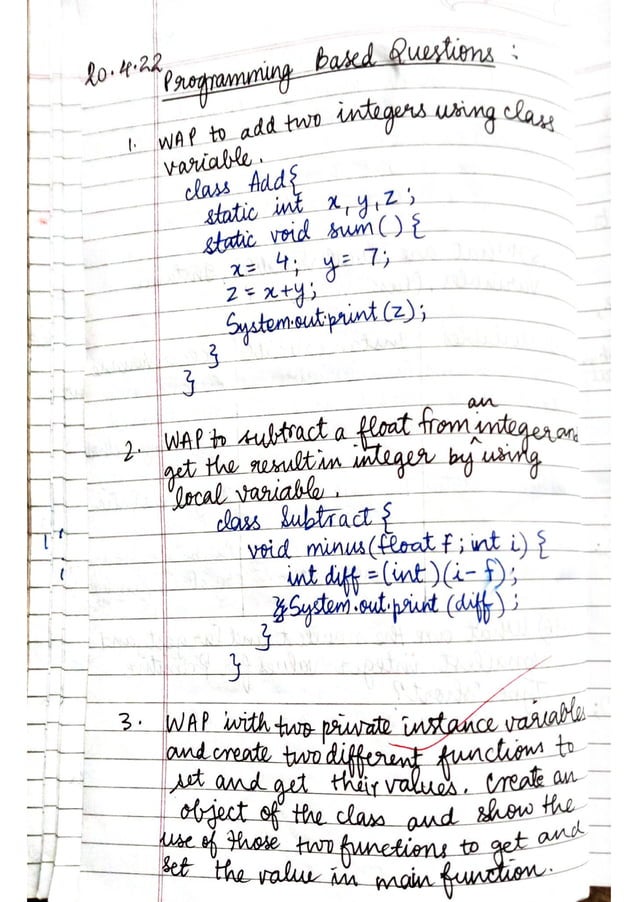 20.4.22
Programming Based Questions :
1. WAP to add two integers using class
variable.
class Add{
static int x, y, z ;
static void sum() {
x= 4; y= 7;
z = x+y;
System.out.print (z);
}
}
2. WAP to subtract a float from an integer and
get the result in integer by using
local variable.
class Subtract {
void minus(float f ; int i) {
int diff = (int)(i- f);
System.out.print (diff) ;
}
}
3. WAP with two private instance variables
and create two different functions to
set and get their values. Create an
object of the class and show the
use of those two functions to get and
set the value in main function.